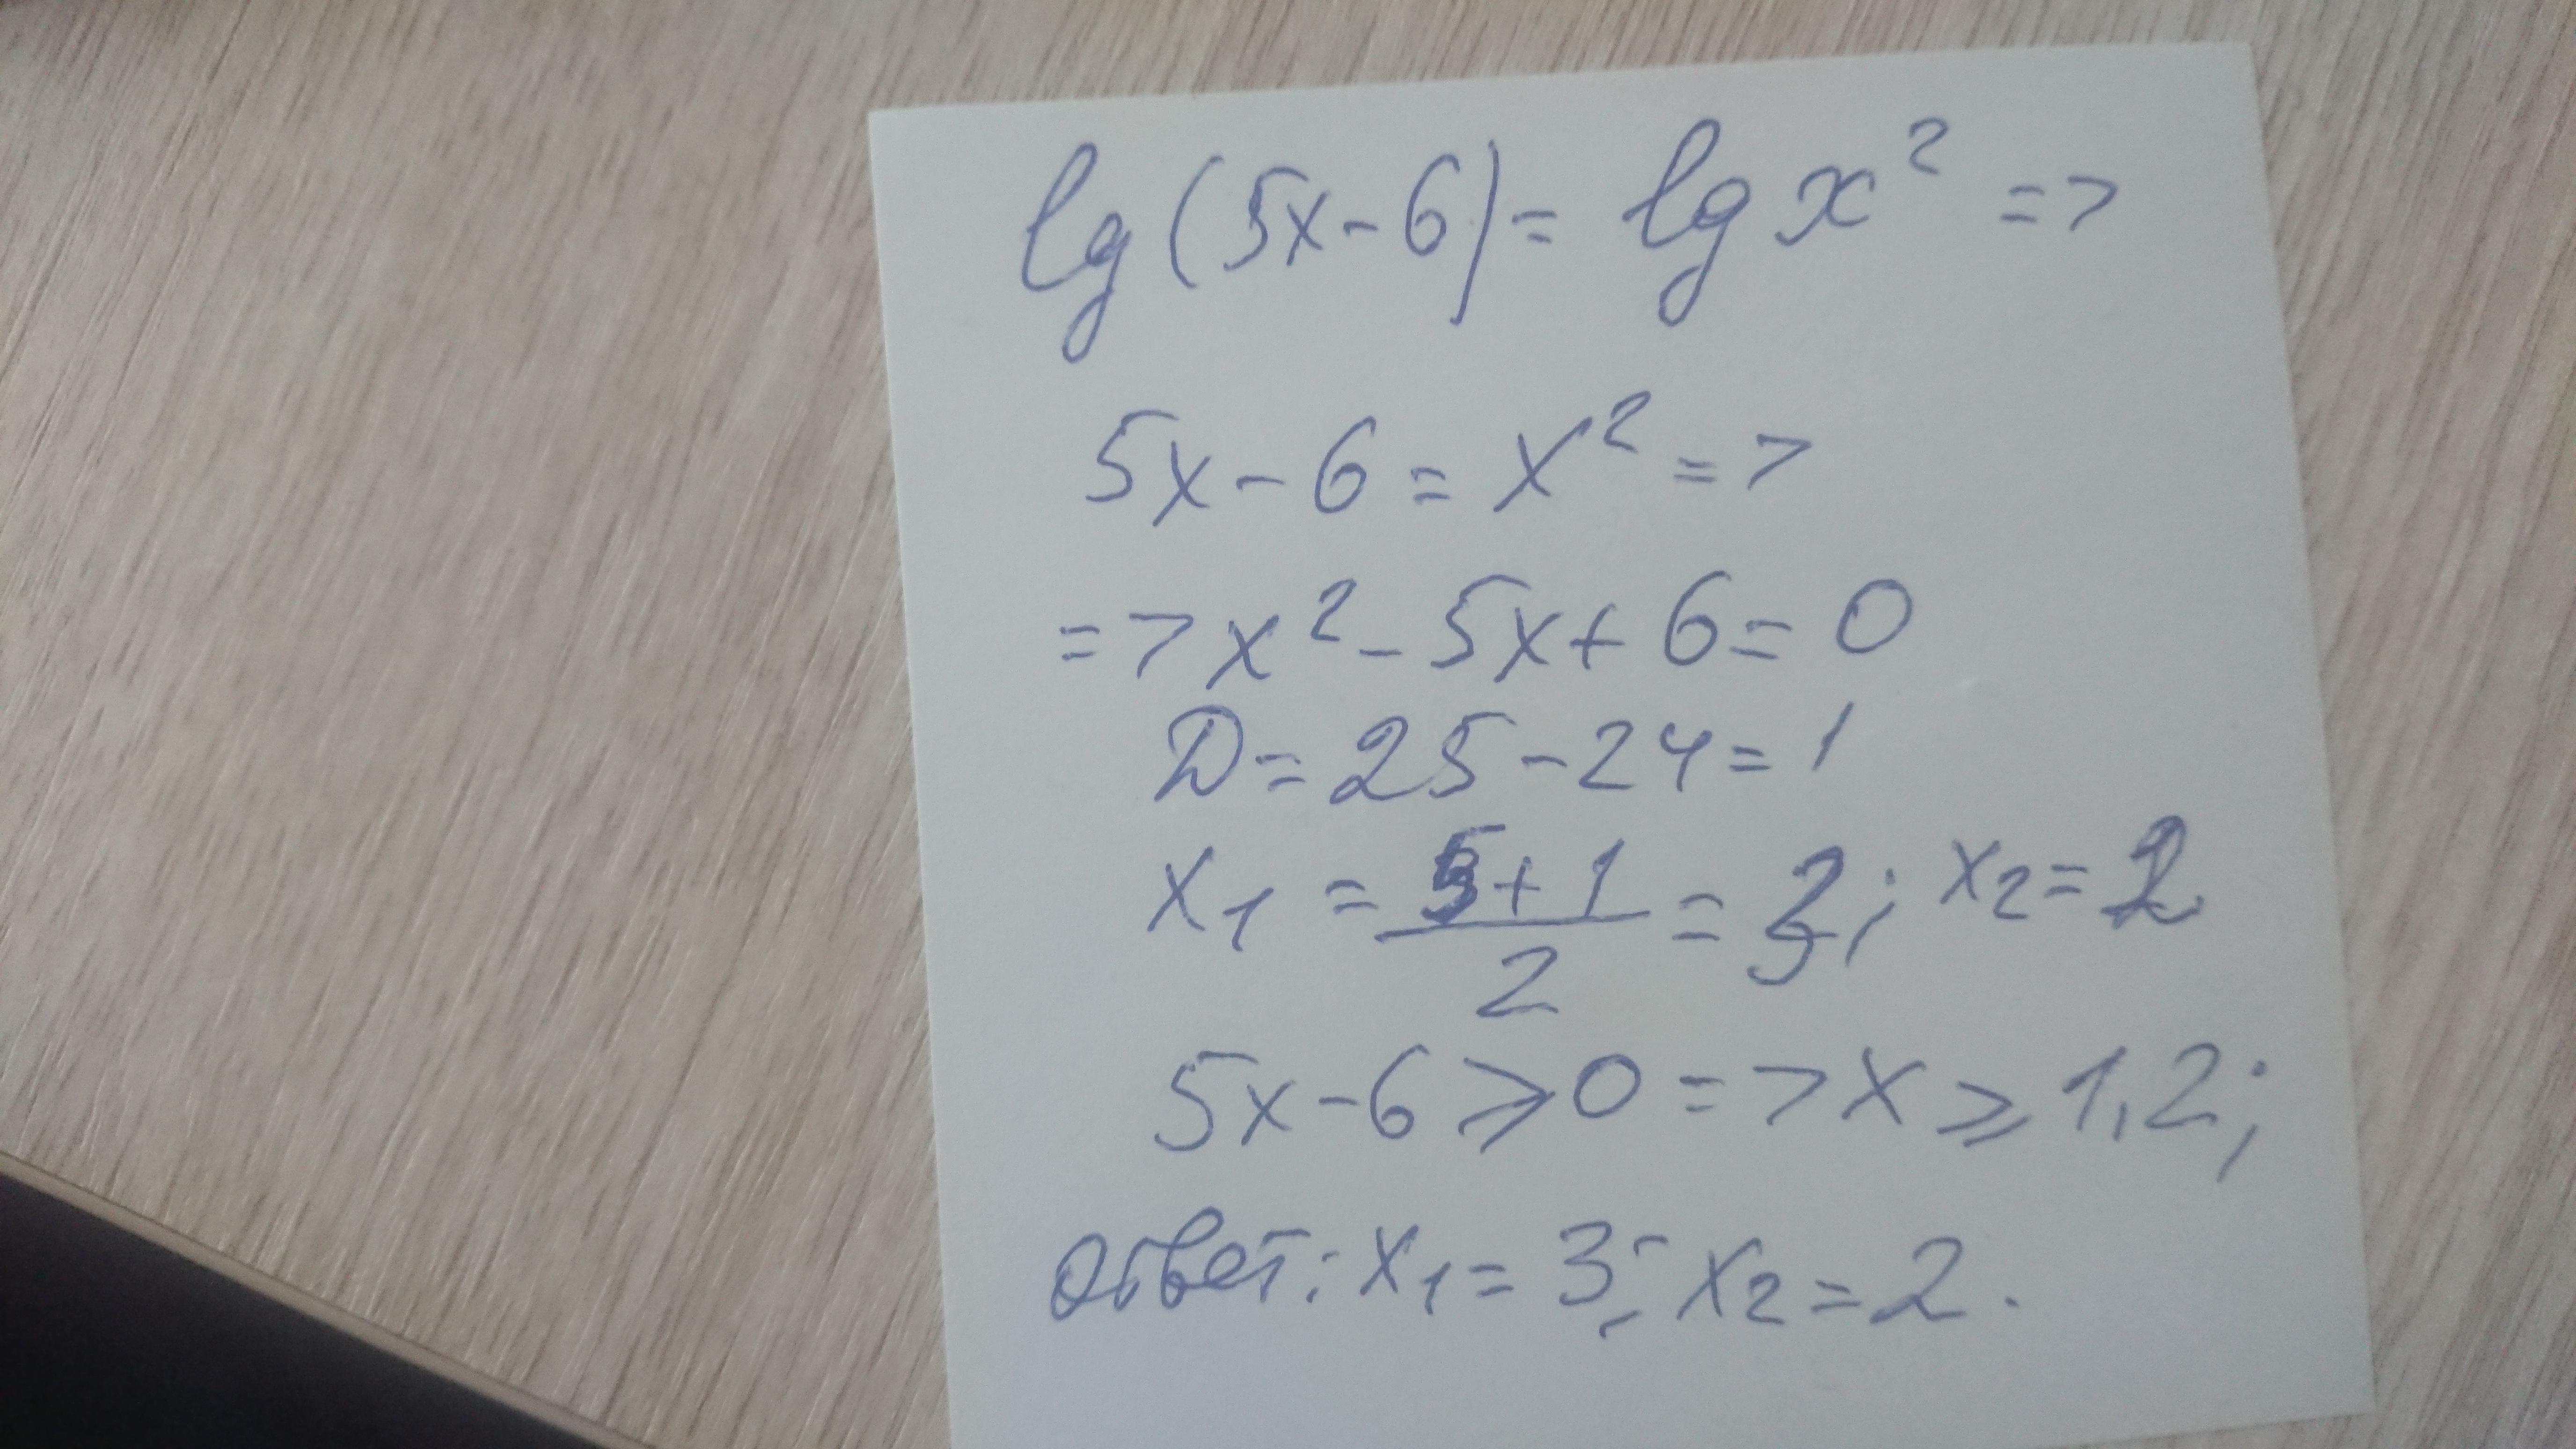 lg(5x-6)= lg x² =>
5x-6=x² =>
=>x²-5x+6=0
D=25-24=1
x₁ = (5+1)/2 = 3; x₂=2
5x-6⩾0=>x⩾1,2;
ответ: x₁=3; x₂=2.